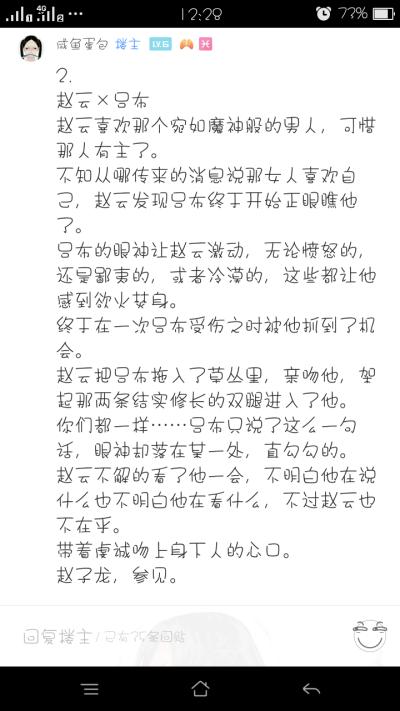 4G
12:28
73%
咸鱼蛋包 楼主 LV.6
2.
赵云×吕布
赵云喜欢那个宛如魔神般的男人，可惜
那人有主了。
不知从哪传来的消息说那女人喜欢自
己，赵云发现吕布终于开始正眼瞧他
了。
吕布的眼神让赵云激动，无论愤怒的，
还是鄙夷的，或者冷漠的，这些都让他
感到欲火焚身。
终于在一次吕布受伤之时被他抓到了机
会。
赵云把吕布拖入了草丛里，亲吻他，架
起那两条结实修长的双腿进入了他。
你们都一样……吕布只说了这么一句
话，眼神却落在某一处，直勾勾的。
赵云不解的看了他一会，不明白他在说
什么也不明白他在看什么，不过赵云也
不在乎。
带着虔诚吻上身下人的心口。
赵子龙，参见。
回复楼主/已有25条回贴